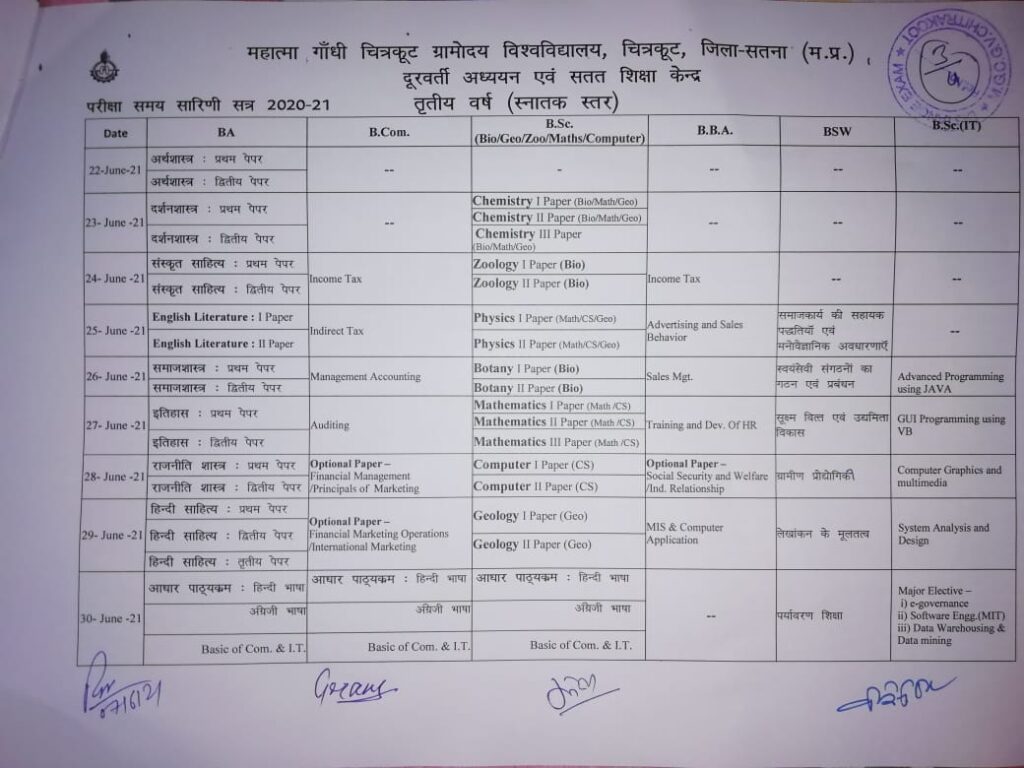 महात्मा गाँधी चित्रकूट ग्रामोदय विश्वविद्यालय, चित्रकूट, जिला-सतना (म.प्र.)
दूरवर्ती अध्ययन एवं सतत शिक्षा केन्द्र
परीक्षा समय सारिणी सत्र 2020-21 तृतीय वर्ष (स्नातक स्तर)
Date BA B.Com. B.Sc. (Bio/Geo/Zoo/Maths/Computer) B.B.A. BSW B.Sc.(IT)
22-June-21
अर्थशास्त्र : प्रथम पेपर
अर्थशास्त्र : द्वितीय पेपर
-- - -- -- --
23- June -21
दर्शनशास्त्र : प्रथम पेपर
दर्शनशास्त्र : द्वितीय पेपर
--
Chemistry I Paper (Bio/Math/Geo)
Chemistry II Paper (Bio/Math/Geo)
Chemistry III Paper
(Bio/Math/Geo)
-- -- --
24- June -21
संस्कृत साहित्य : प्रथम पेपर
संस्कृत साहित्य : द्वितीय पेपर
Income Tax
Zoology I Paper (Bio)
Zoology II Paper (Bio)
Income Tax
-- --
25- June -21
English Literature : I Paper
English Literature : II Paper
Indirect Tax
Physics I Paper (Math/CS/Geo)
Physics II Paper (Math/CS/Geo)
Advertising and Sales
Behavior
समाजकार्य की सहायक
पद्धतियाँ एवं
मनोवैज्ञानिक अवधारणाएँ
--
26- June -21
समाजशास्त्र : प्रथम पेपर
समाजशास्त्र : द्वितीय पेपर
Management Accounting
Botany I Paper (Bio)
Botany II Paper (Bio)
Sales Mgt.
स्वयंसेवी संगठनों का
गठन एवं प्रबंधन
Advanced Programming
using JAVA
27- June -21
इतिहास : प्रथम पेपर
इतिहास : द्वितीय पेपर
Auditing
Mathematics I Paper (Math /CS)
Mathematics II Paper (Math /CS)
Mathematics III Paper (Math /CS)
Training and Dev. Of HR
सूक्ष्म वित्त एवं उद्यमिता
विकास
GUI Programming using
VB
28- June -21
राजनीति शास्त्र : प्रथम पेपर
राजनीति शास्त्र : द्वितीय पेपर
Optional Paper –
Financial Management
/Principals of Marketing
Computer I Paper (CS)
Computer II Paper (CS)
Optional Paper –
Social Security and Welfare
/Ind. Relationship
ग्रामीण प्रौद्योगिकी
Computer Graphics and
multimedia
29- June -21
हिन्दी साहित्य : प्रथम पेपर
हिन्दी साहित्य : द्वितीय पेपर
हिन्दी साहित्य : तृतीय पेपर
Optional Paper –
Financial Marketing Operations
/International Marketing
Geology I Paper (Geo)
Geology II Paper (Geo)
MIS & Computer
Application
लेखांकन के मूलतत्व
System Analysis and
Design
30- June -21
आधार पाठ्यक्रम : हिन्दी भाषा
अंग्रेजी भाषा
Basic of Com. & I.T.
आधार पाठ्यक्रम : हिन्दी भाषा
अंग्रेजी भाषा
Basic of Com. & I.T.
आधार पाठ्यक्रम : हिन्दी भाषा
अंग्रेजी भाषा
Basic of Com. & I.T.
--
पर्यावरण शिक्षा
Major Elective –
i) e-governance
ii) Software Engg.(MIT)
iii) Data Warehousing &
Data mining